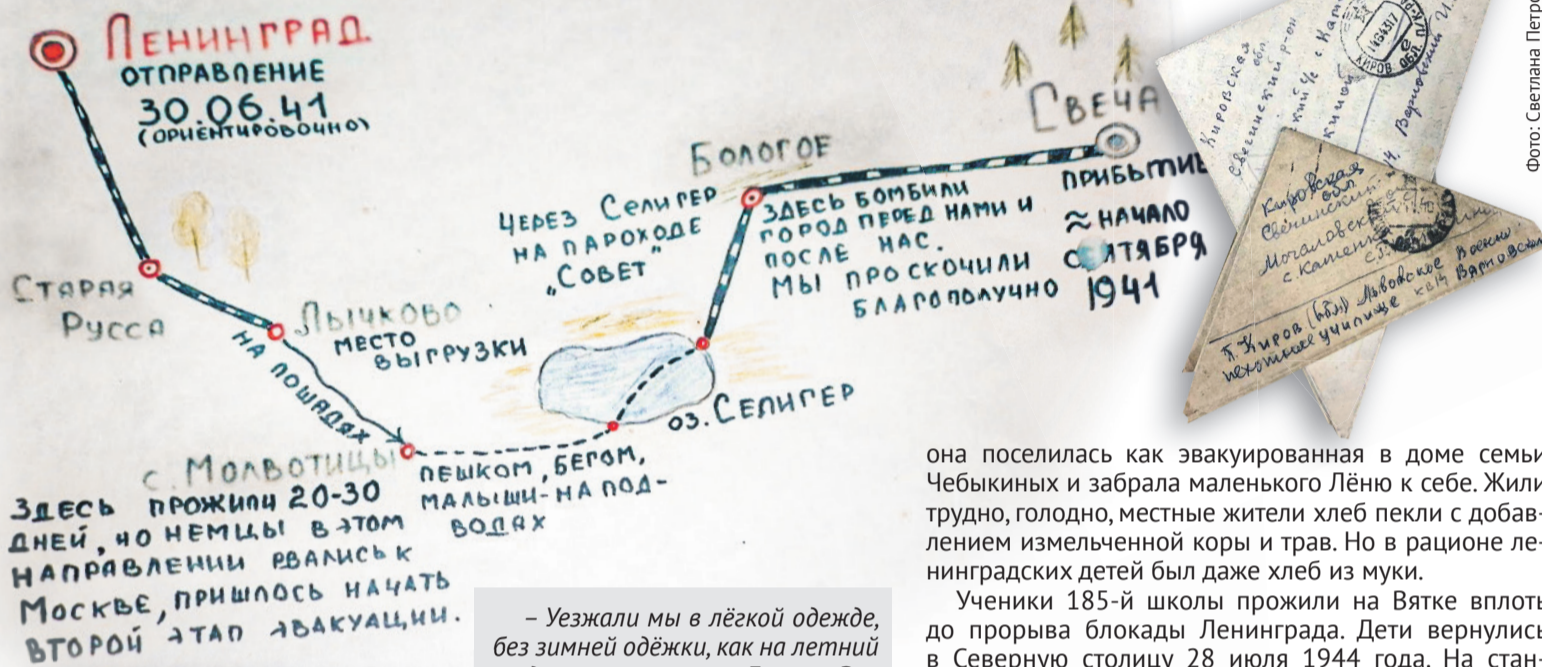 ЛЕНИНГРАД
ОТПРАВЛЕНИЕ
30.06.41
(ОРИЕНТИРОВОЧНО)
СТАРАЯ
РУССА
ЛЫЧКОВО
МЕСТО
ВЫГРУЗКИ
НА ЛОШАДЯХ
с. МОЛВОТИЦЫ
ЗДЕСЬ ПРОЖИЛИ 20-30
ДНЕЙ, НО НЕМЦЫ В ЭТОМ
НАПРАВЛЕНИИ РВАЛИСЬ К
МОСКВЕ, ПРИШЛОСЬ НАЧАТЬ
ВТОРОЙ ЭТАП ЭВАКУАЦИИ.
ПЕШКОМ, БЕГОМ,
МАЛЫШИ-НА ПОД-
ВОДАХ
ОЗ. СЕЛИГЕР
ЧЕРЕЗ СЕЛИГЕР
НА ПАРОХОДЕ
„СОВЕТ"
БОЛОГОЕ
ЗДЕСЬ БОМБИЛИ
ГОРОД ПЕРЕД НАМИ И
ПОСЛЕ НАС.
МЫ ПРОСКОЧИЛИ
БЛАГОПОЛУЧНО
СВЕЧА
ПРИБЫТИЕ
≈ НАЧАЛО
СЕНТЯБРЯ
1941
Кировская
обл.
Свечинский р-он
КИРОВ ОБЛ.
Кировская
обл.
Свечинский
с Каменка
П. Киров (обл) Львовское Военно
пехотное училище
Фото: Светлана Петро
– Уезжали мы в лёгкой одежде,
без зимней одёжки, как на летний
она поселилась как эвакуированная в доме семьи
Чебыкиных и забрала маленького Лёню к себе. Жили
трудно, голодно, местные жители хлеб пекли с добав-
лением измельченной коры и трав. Но в рационе ле-
нинградских детей был даже хлеб из муки.
Ученики 185-й школы прожили на Вятке вплоть
до прорыва блокады Ленинграда. Дети вернулись
в Северную столицу 28 июля 1944 года. На стан-